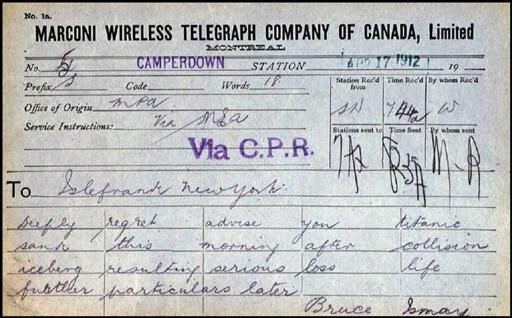 No. 1a.
MARCONI WIRELESS TELEGRAPH COMPANY OF CANADA, Limited
MONTREAL
No. CAMPERDOWN STATION APR 17 1912 19
Prefix S Code Words 18
Station Rec'd from Time Rec'd By whom Rec'd
Office of Origin MPA
Service Instructions: Via MEA
Stations sent to Time Sent By whom sent
Via C.P.R.
To Islefrank New York.
Deeply regret advise you titanic
sank this morning after collision
iceberg resulting serious loss life
further particulars later
Bruce Ismay